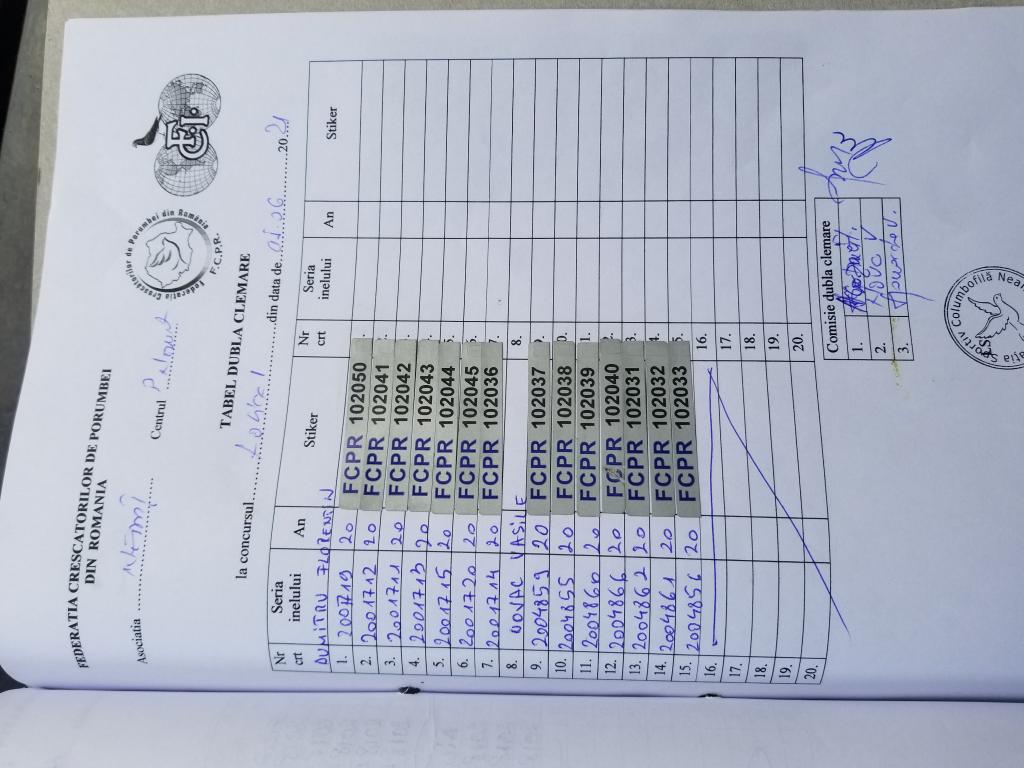 FEDERATIA CRESCATORILOR DE PORUMBEI
DIN ROMANIA
Federatia Crescatorilor de Porumbei din România
F.C.P.R.
Asociatia .................... Centrul ....................
TABEL DUBLA CLEMARE
la concursul.................... din data de 01.06 2021
Nr crt Seria inelului An Stiker Nr crt Seria inelului An Stiker
DUMITRU FLORENTIN
1. 200719 20 FCPR 102050
2. 2001712 20 FCPR 102041
3. 2001711 20 FCPR 102042
4. 2001713 20 FCPR 102043
5. 2001715 20 FCPR 102044
6. 2001720 20 FCPR 102045
7. 2001714 20 FCPR 102036
8. VASILE 8.
9. 2004859 20 FCPR 102037
10. 2004855 20 FCPR 102038
11. 2004860 20 FCPR 102039
12. 2004866 20 FCPR 102040
13. 2004862 20 FCPR 102031
14. 2004861 20 FCPR 102032
15. 2004856 20 FCPR 102033
16. 16.
17. 17.
18. 18.
19. 19.
20. 20.
Comisie dubla clemare
1.
2.
3.
Columbofilă